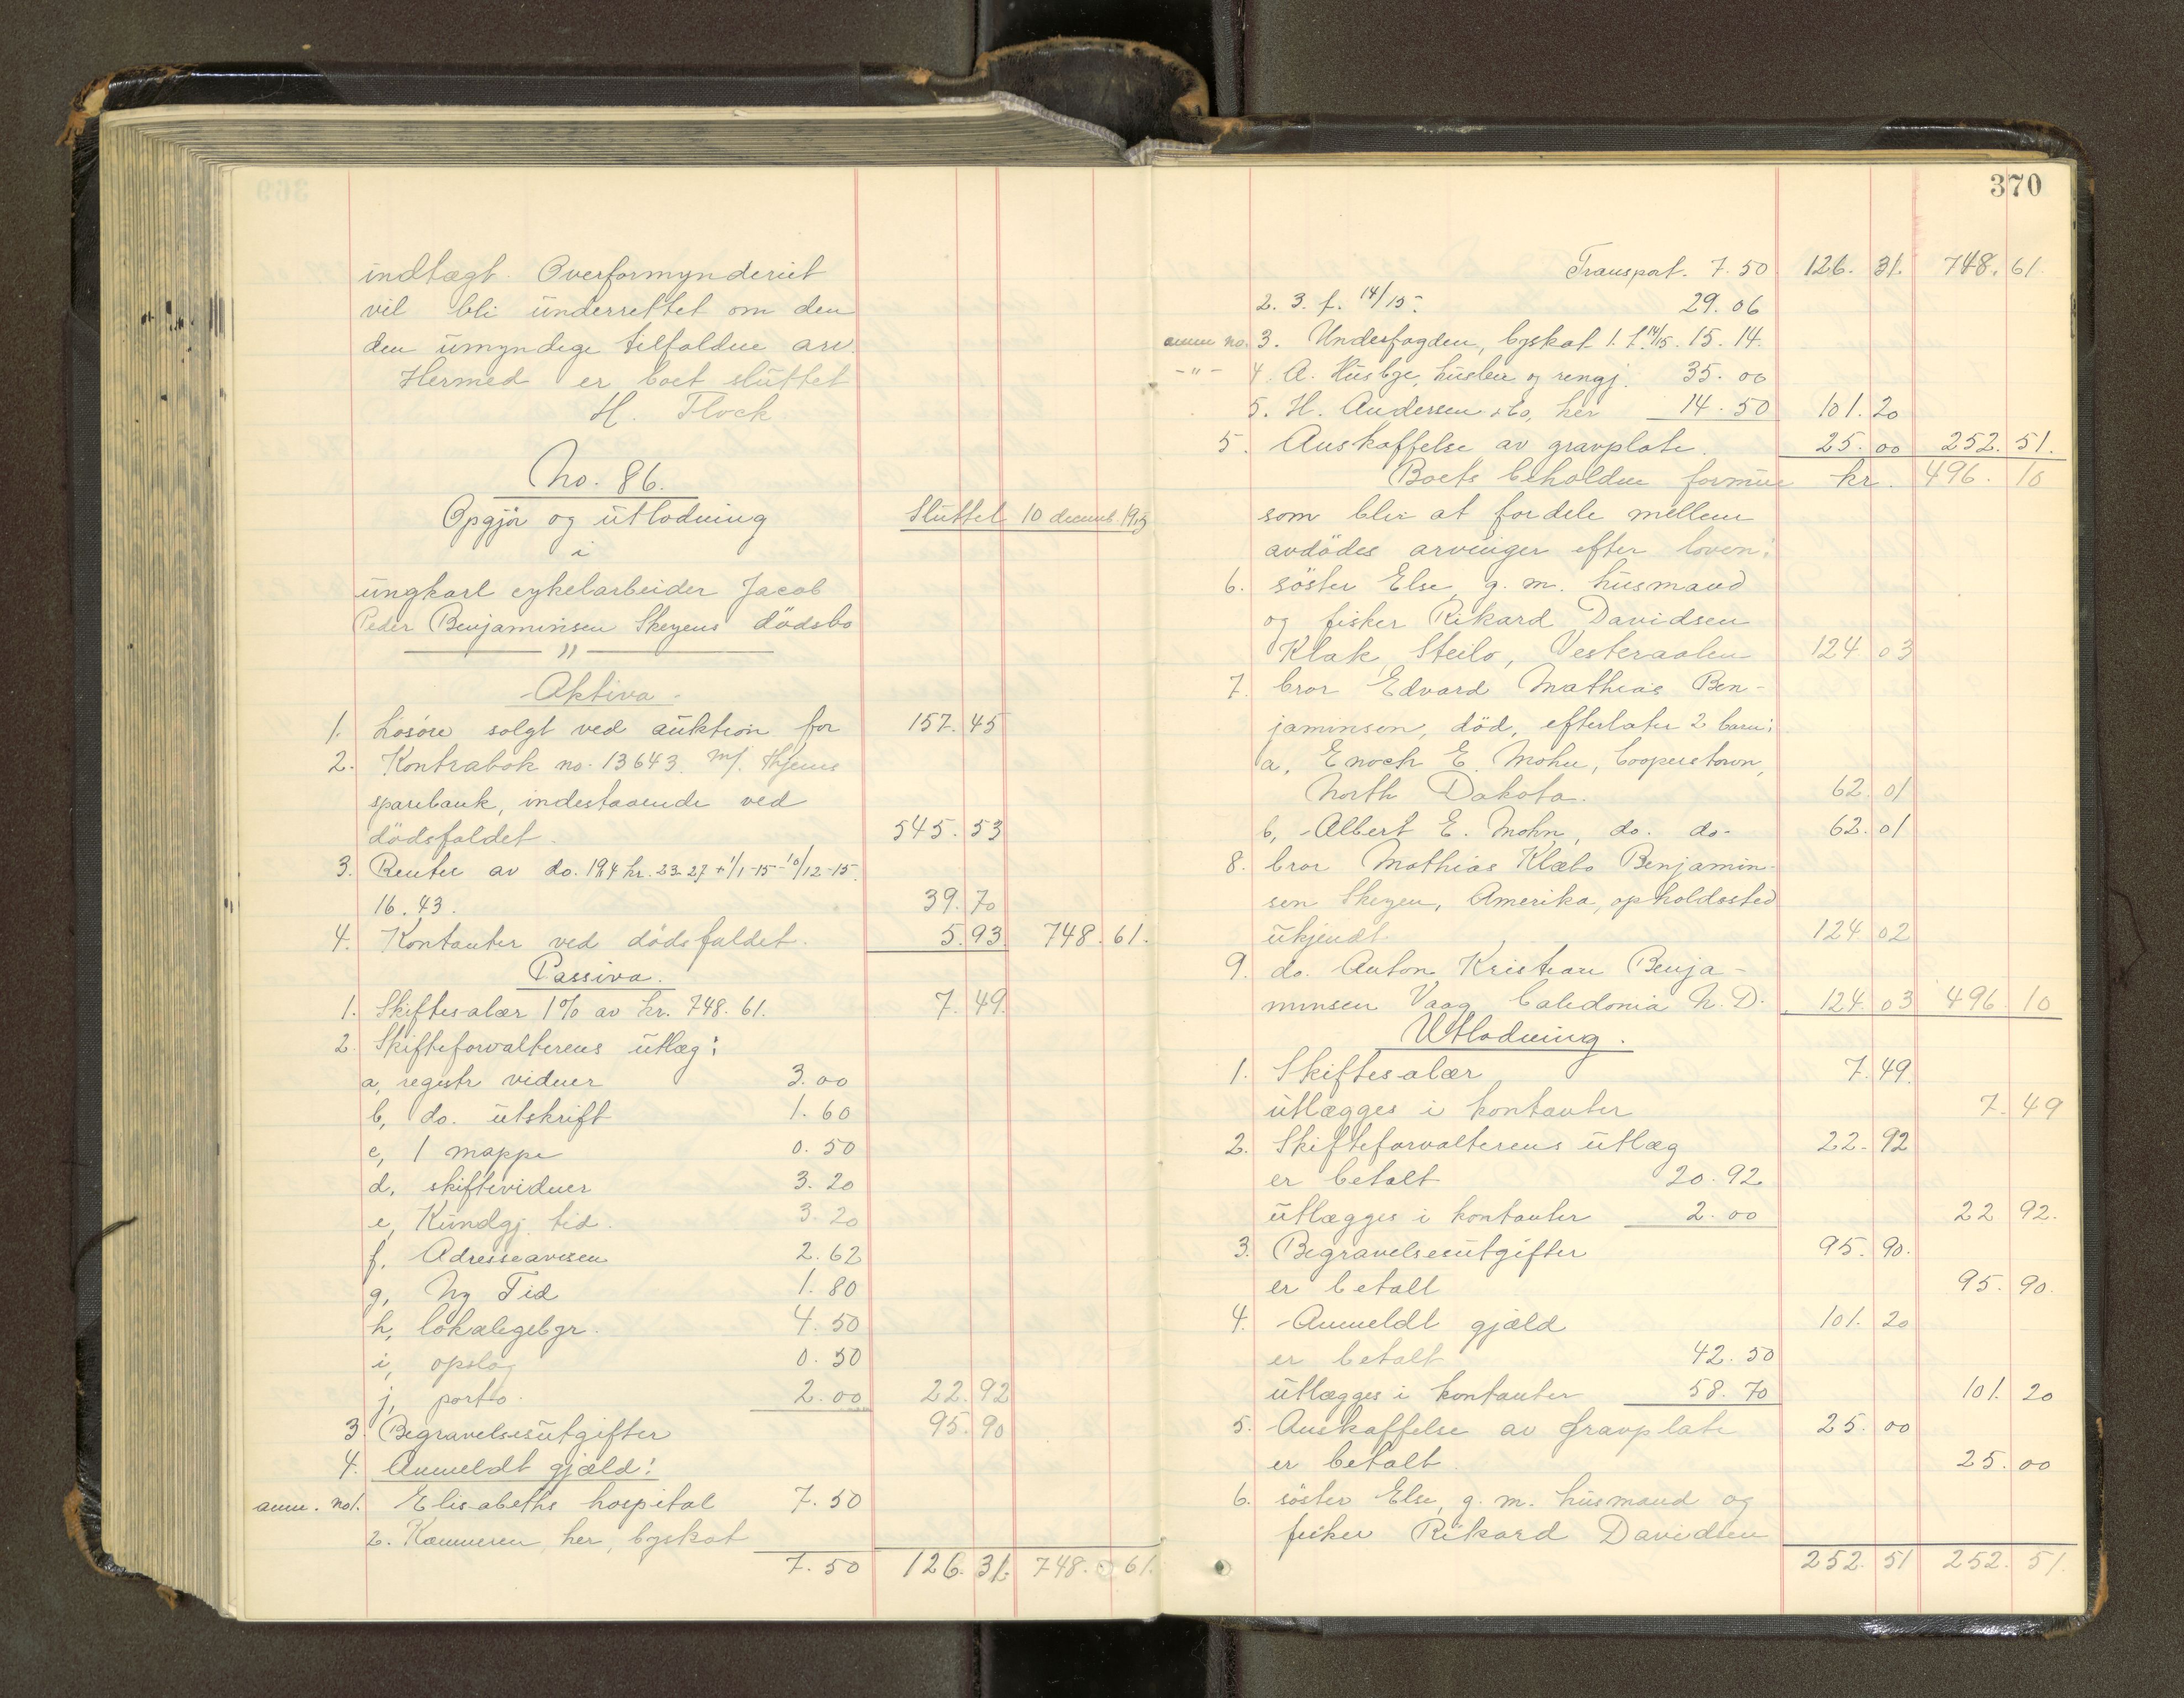 indtagt. Overformynderiet
vil bli underrettet om den
den umyndige tilfaldne arv.
Hermed er boet sluttet
H. Flock
No. 86.
Opgjør og utlodning Sluttet 10 decemb. 1915
i
ungkarl cykelarbeider Jacob
Peder Benjaminsen Skeyens dödsbo
"
Aktiva
1. Lösöre solgt ved auktion for 157.45
2. Kontrabok no. 13643 m/ Thjems
sparebank, indestaaende ved
dödsfaldet. 545.53
3. Renter av do. 1914 kr. 23.27 + 1/1-15 - 10/12-15.
16.43. 39.70
4. Kontanter ved dödsfaldet. 5.93 748.61.
Passiva.
1. Skiftesalær 1% av kr. 748.61. 7.49
2. Skifteforvalterens utlæg:
a, registr vidner 3.00
b, do. utskrift 1.60
c, 1 mappe 0.50
d, skiftevidner 3.20
e, Kundgj. tid. 3.20
f, Adresseavisen 2.62
g, Ny Tid 1.80
h, lokalegebyr. 4.50
i, opslag 0.50
j, porto. 2.00 22.92
3. Begravelsesutgifter 95.90
4. Anmeldt gjæld:
anm. no 1. Elisabeths hospital 7.50
2. Kæmneren, her, byskat
7.50 126.31. 748.61.
370
Transport. 7.50 126.31. 748.61.
2. 3. f. 14/15. 29.06
anm no. 3. Underfogden, byskat 1. f. 14/15. 15.14.
-"- 4. A. Husbye, husleie og rengj. 35.00
5. H. Andersen & Co, her 14.50 101.20
5. Anskaffelse av gravplate. 25.00 252.51.
Boets beholdne formue kr. 496.10
som blir at fordele mellem
avdödes arvinger efter loven:
6. söster Else, g. m. husmand
og fisker Rikard Davidsen
Klak, Steilo, Vesteraalen 124 03
7. bror Edvard Mathias Ben-
jaminsen, död, efterlater 2 barn:
a, Enoch E. Mohn, Cooperstown,
North Dakota. 62.01
b, Albert E. Mohn, do. do. 62.01
8. bror Mathias Klæbo Benjamin-
sen Skeyen, Amerika, opholdssted
ukjendt. 124 02
9. do. Anton Kristian Benja-
minsen Vaag Caledonia N. D. 124.03 496 10
Utlodning.
1. Skiftesalær 7.49.
utlægges i kontanter 7.49
2. Skifteforvalterens utlæg 22.92
er betalt 20.92
utlægges i kontanter 2.00 22 92.
3. Begravelsesutgifter 95.90.
er betalt 95.90.
4. Anmeldt gjæld 101.20
er betalt 42.50
utlægges i kontanter 58.70 101.20
5. Anskaffelse av gravplate 25.00
er betalt. 25.00
6. söster Else, g. m. husmand og
fisker Rikard Davidsen
252.51 252.51.